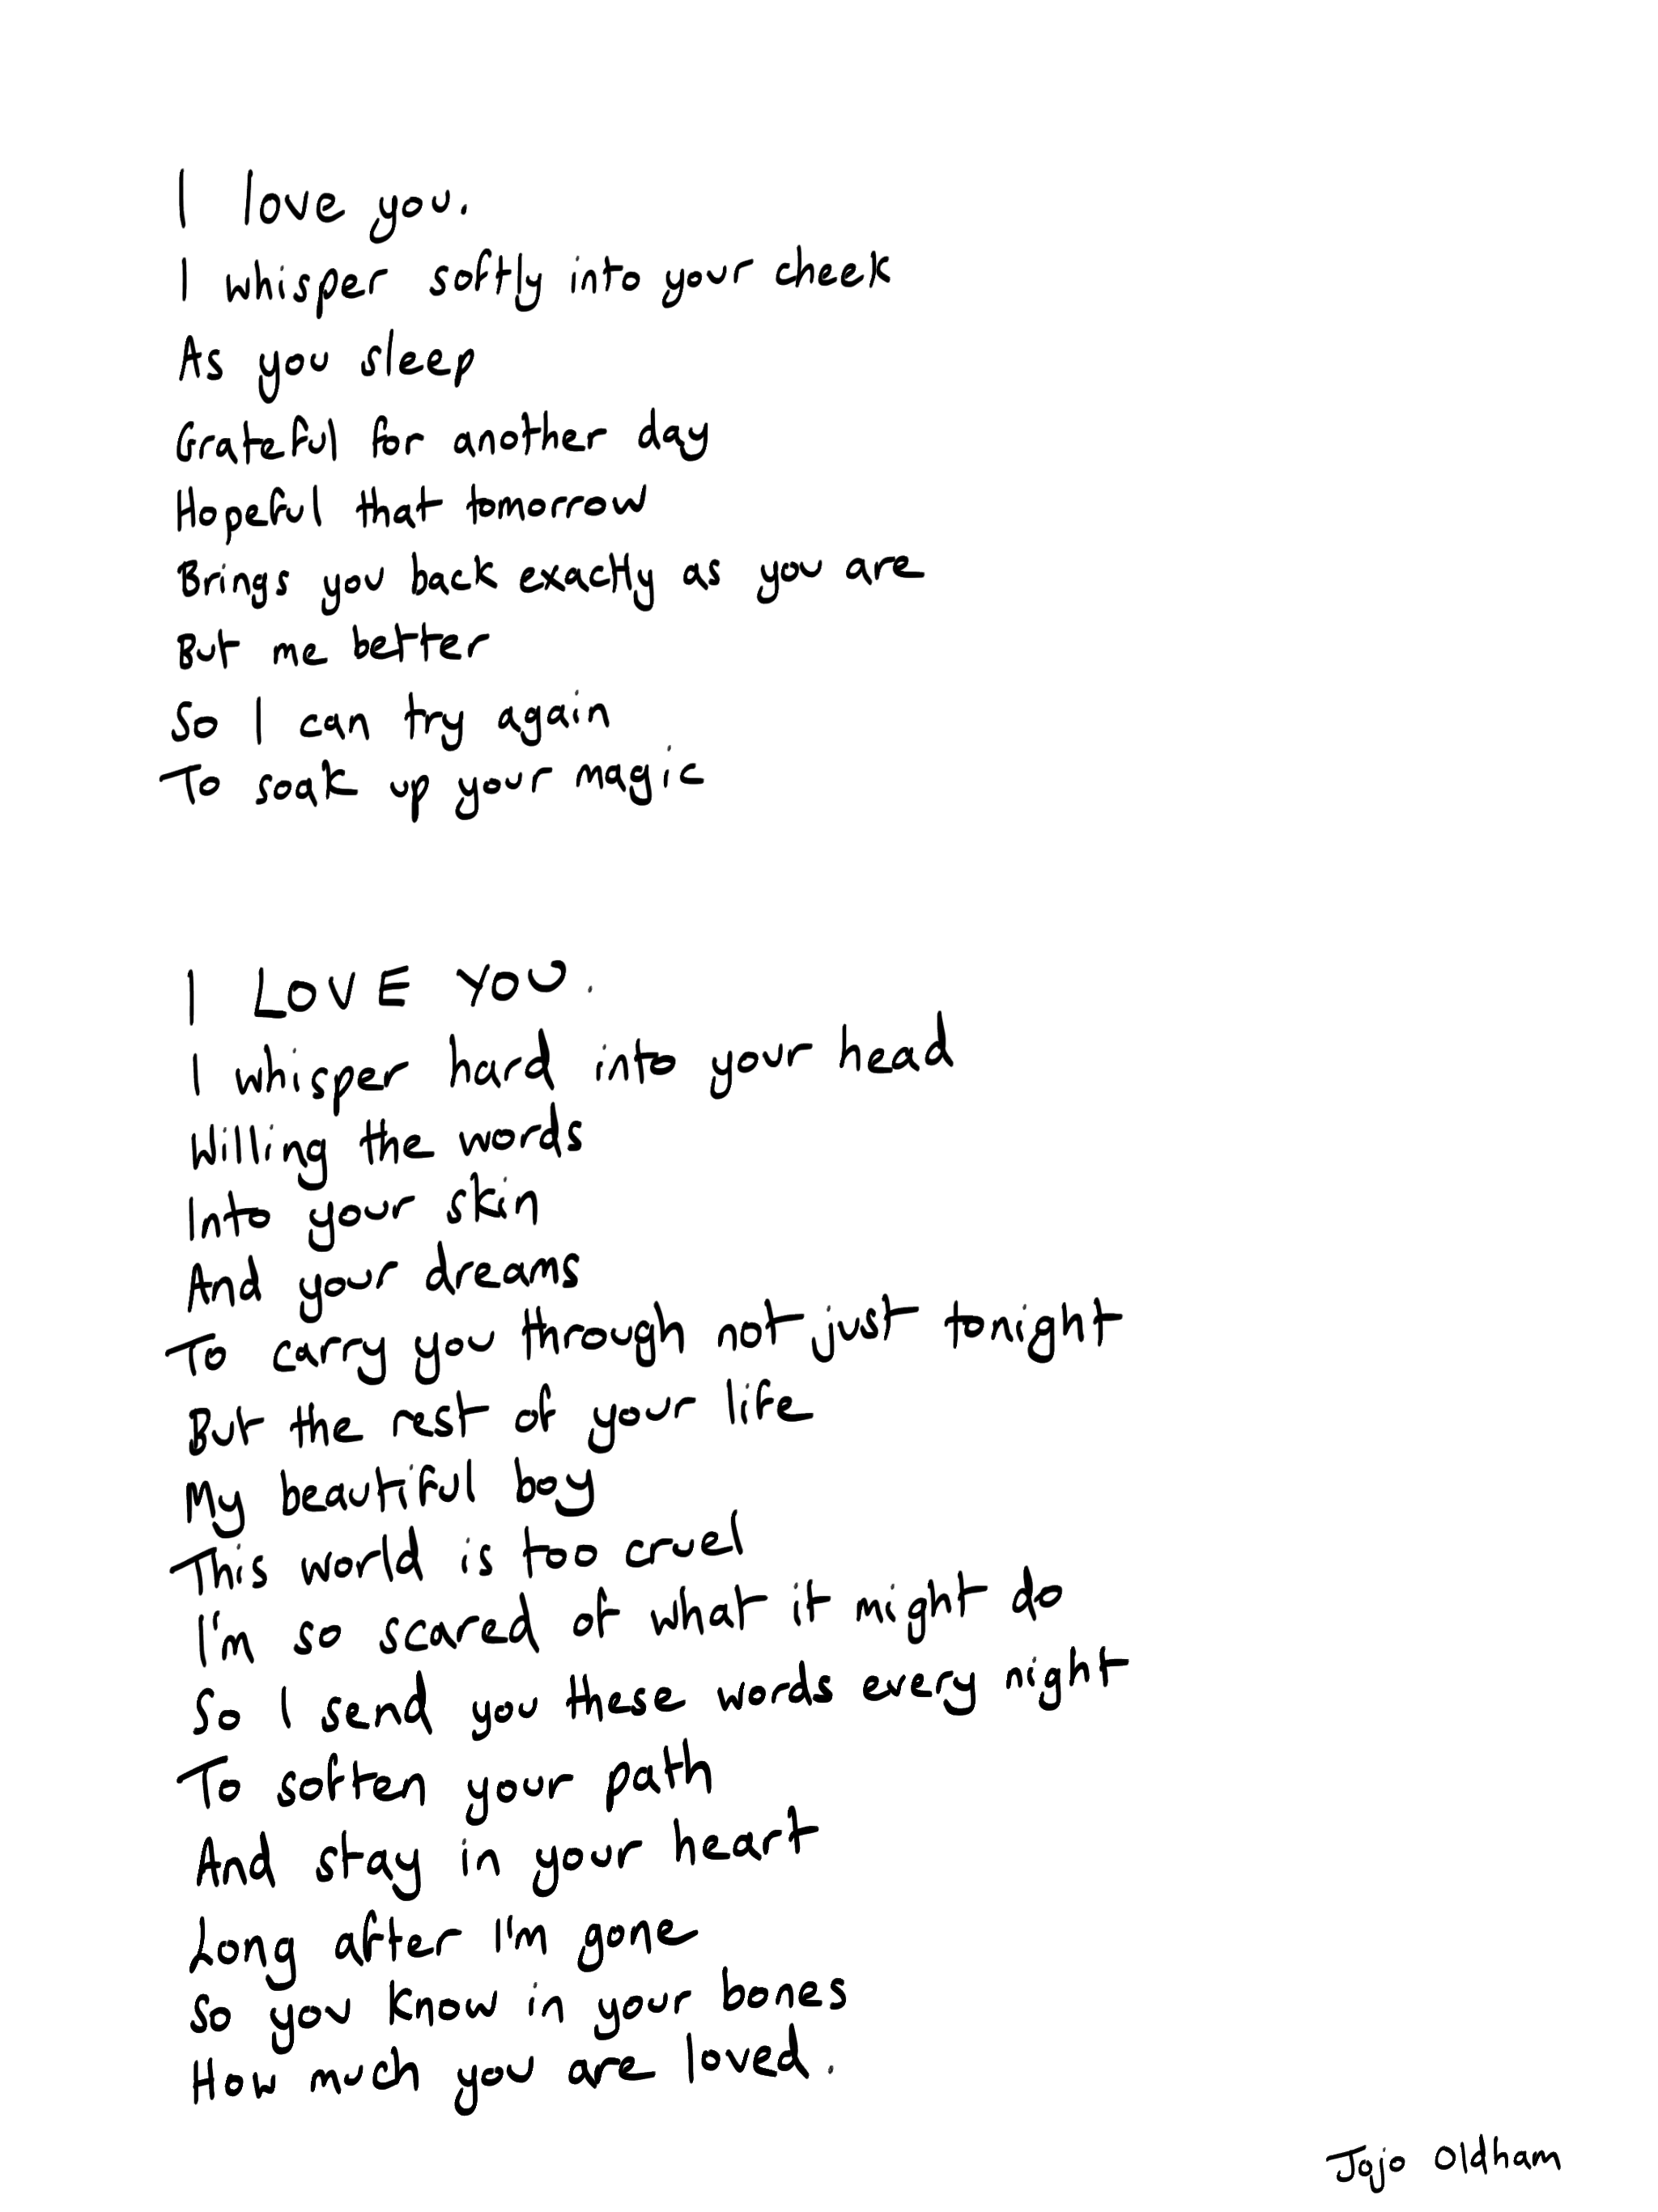 I love you.
I whisper softly into your cheek
As you sleep
Grateful for another day
Hopeful that tomorrow
Brings you back exactly as you are
But me better
So I can try again
To soak up your magic
I LOVE YOU.
I whisper hard into your head
Willing the words
Into your skin
And your dreams
To carry you through not just tonight
But the rest of your life
My beautiful boy
This world is too cruel
I'm so scared of what it might do
So I send you these words every night
To soften your path
And stay in your heart
Long after I'm gone
So you know in your bones
How much you are loved.
Jojo Oldham